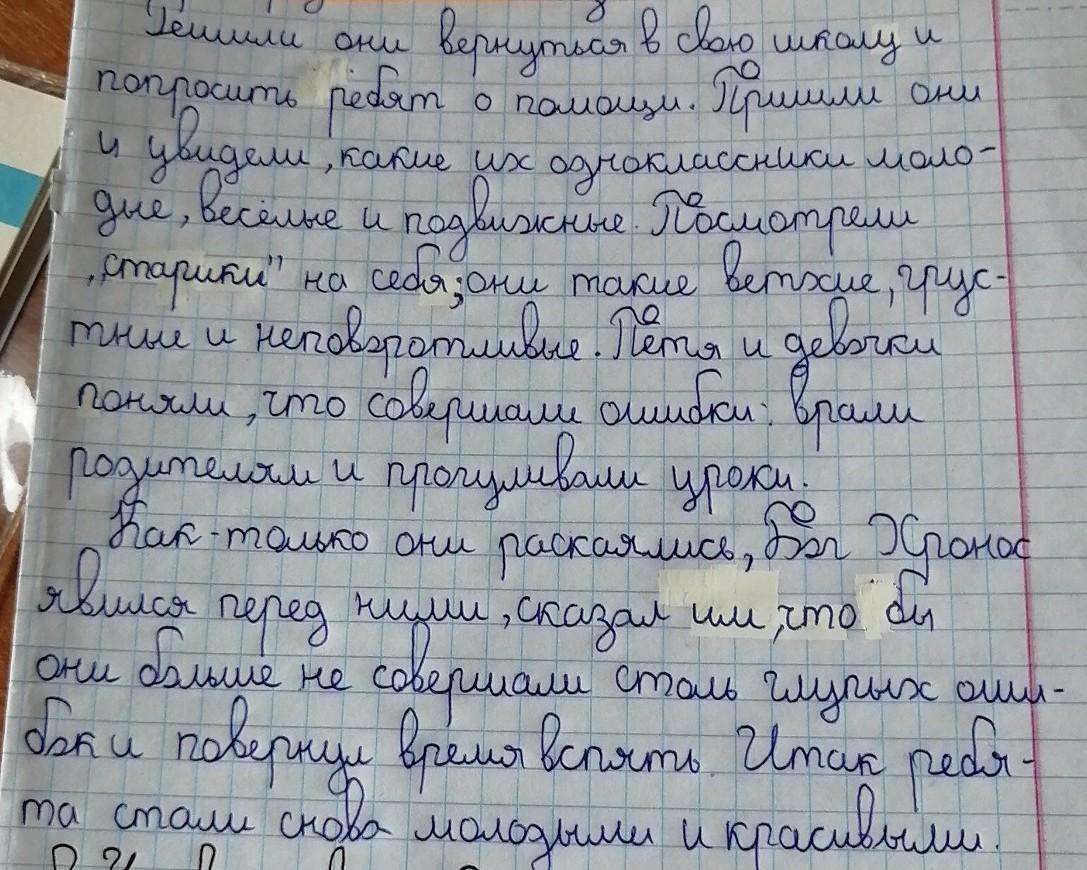 Решили они вернуться в свою школу и
попросить ребят о помощи. Пришли они
и увидели, какие их одноклассники моло-
дые, весёлые и подвижные. Посмотрели
„старики" на себя; они такие ветхие, грус-
тные и неповоротливые. Петя и девочки
поняли, что совершали ошибки: врали
родителям и прогуливали уроки.
Как-только они раскаялись, Бог Хронос
явился перед ними, сказал им, что бы
они больше не совершали столь глупых оши-
бок и повернул время вспять. Итак ребя-
та стали снова молодыми и красивыми.